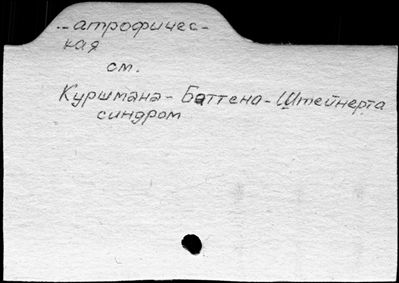 -- атрофичес-
кая
см.
Куршмана - Баттена - Штейнерта
синдром